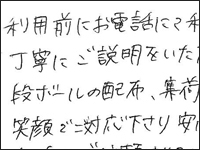 利用前にお電話にて利
丁寧にご説明をいた
段ボールの配布、集荷
笑顔でご対応下さり安